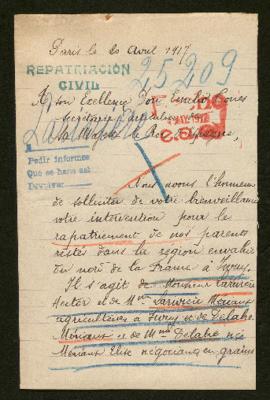 Paris le 20 Avril 1917
REPATRIACIÓN
CIVIL
25209
A son Excellence Don Emilio
Secrétaire particulier de
sa Majesté le Roi d'Espagne,
Pedir informes
Que se haga
Nous avons l'honneur
de solliciter de votre bienveillance
votre intervention pour le
rapatriement de nos parents
restés dans la région envahie
du nord de la France à
Il s'agit de Monsieur
Hector et de Mme Mériaux
agriculteurs à et de Delabre
Mériaux et de Mme Delabre née
Mériaux Elise négociants en grains